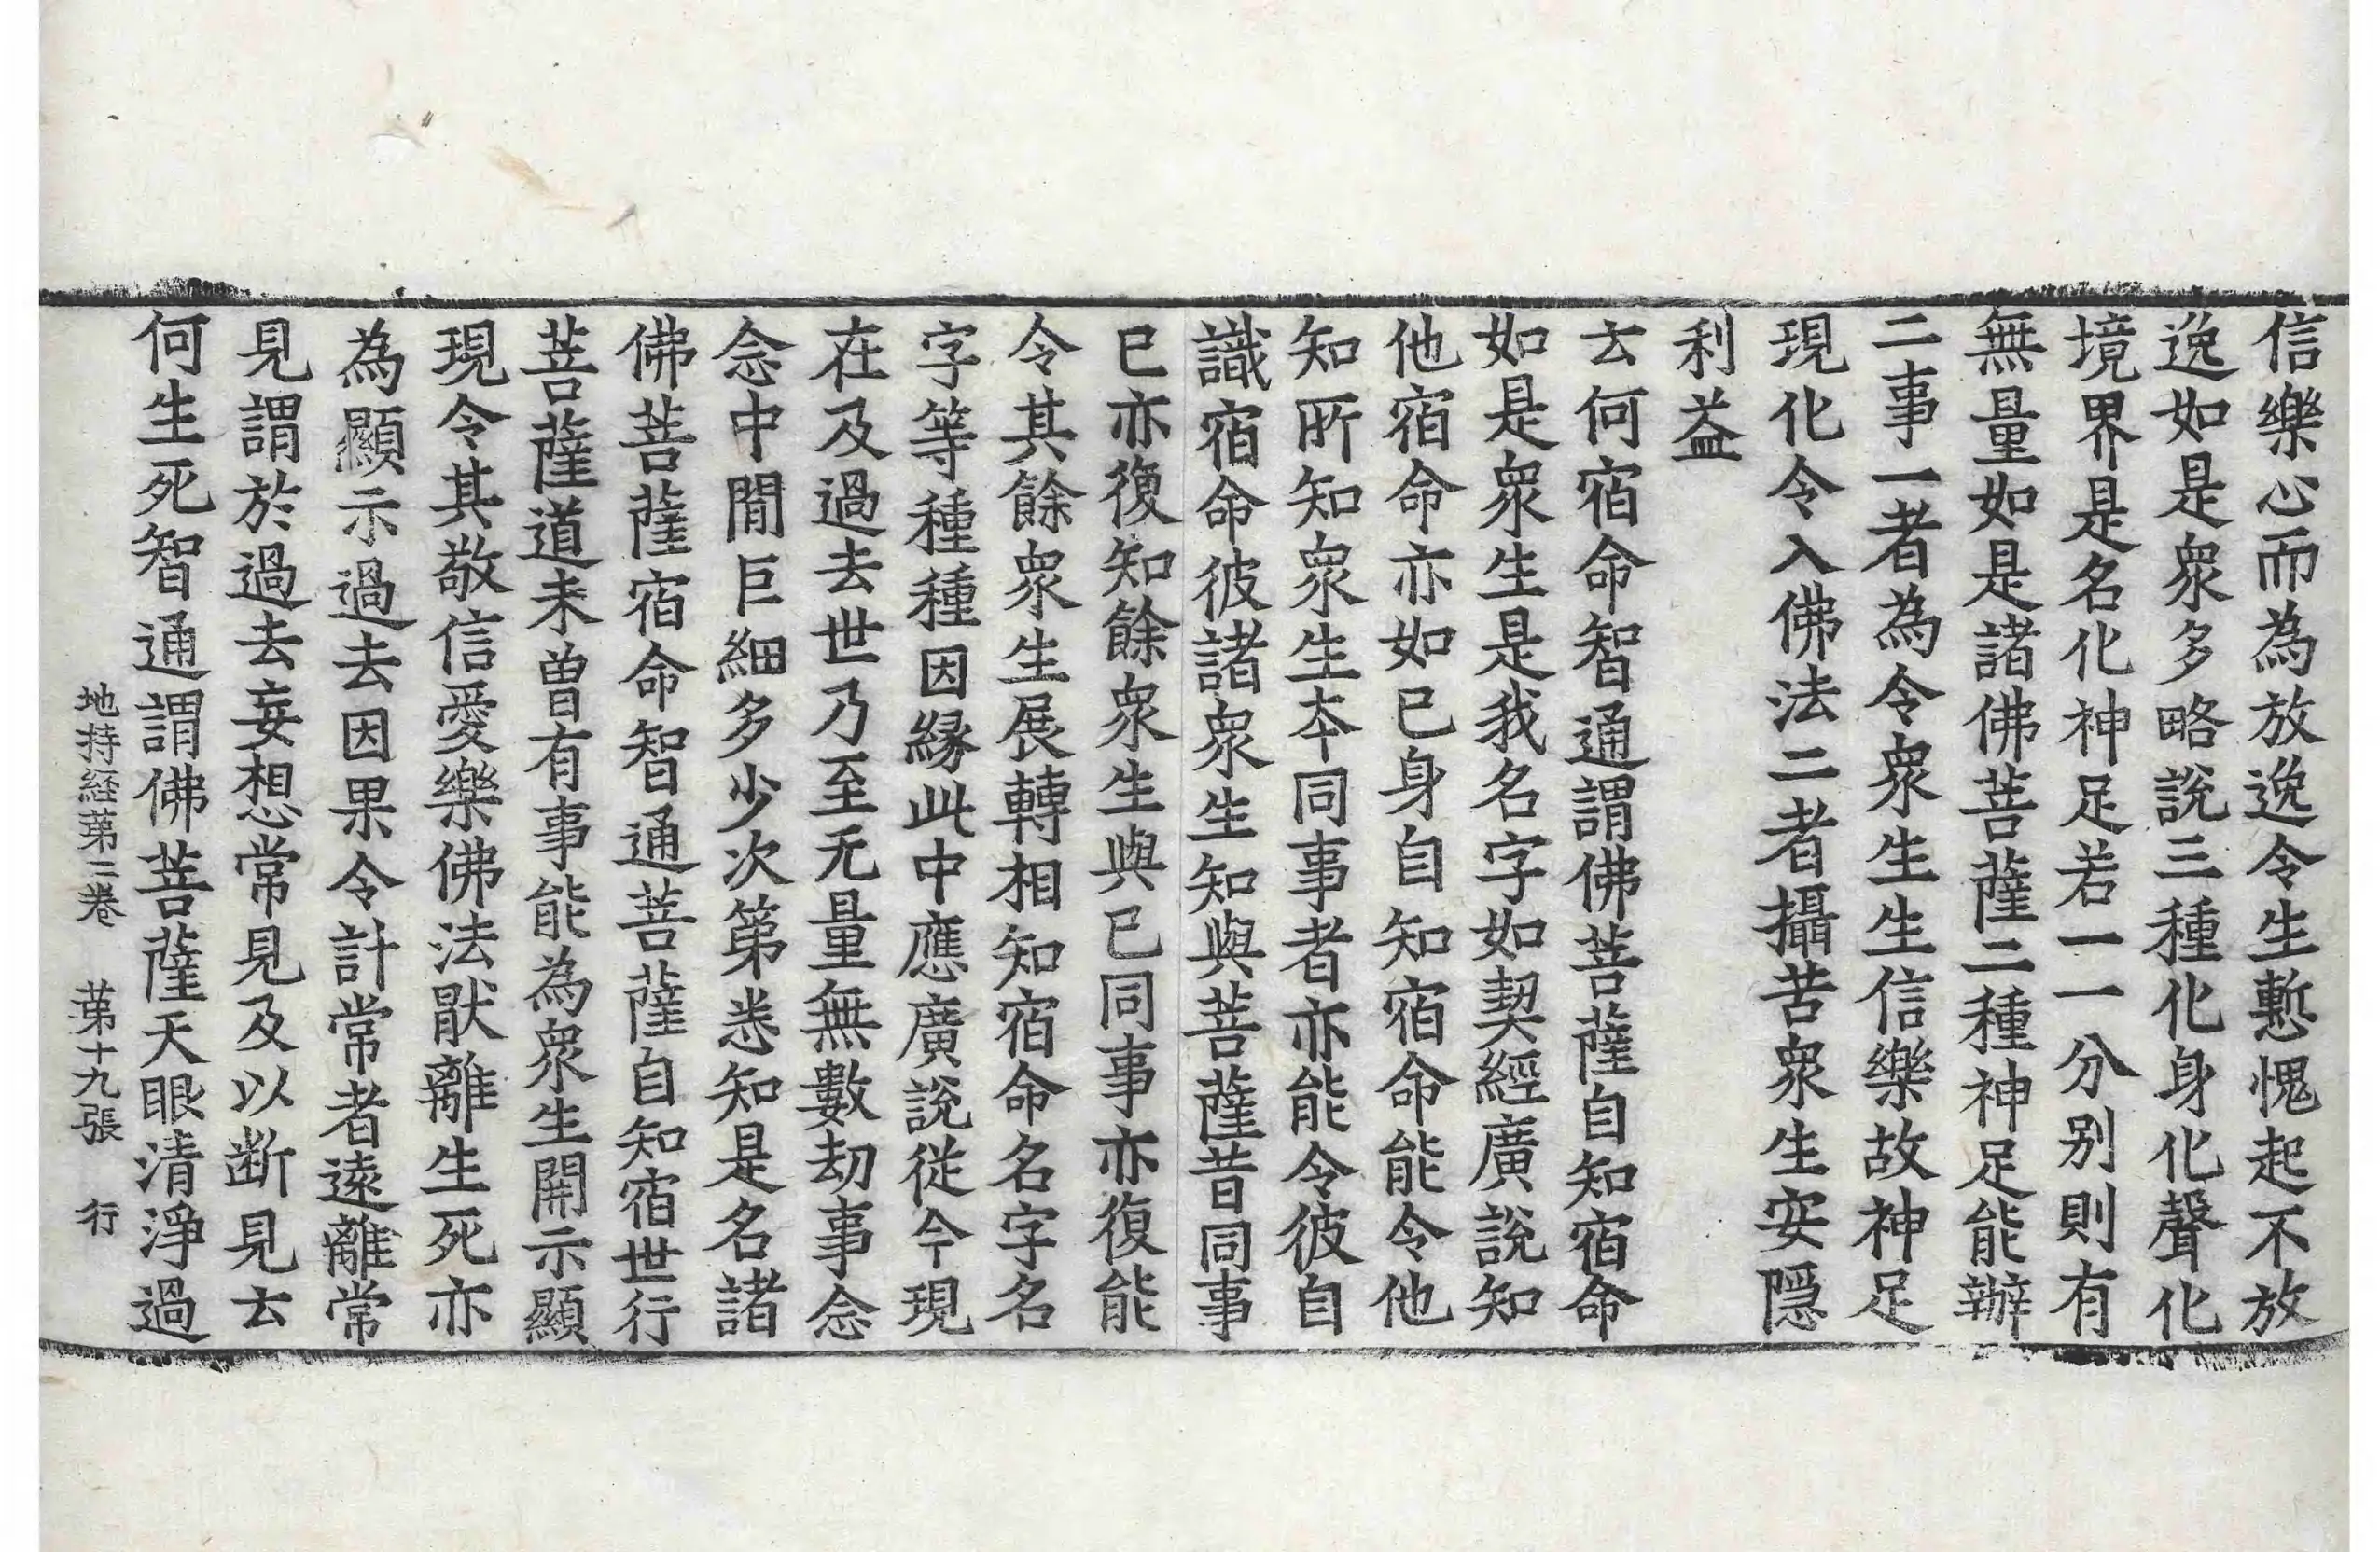 信樂心而為放逸令生慙愧起不放
逸如是衆多略說三種化身化聲化
境界是名化神足若一一分別則有
無量如是諸佛菩薩二種神足能辦
二事一者為令衆生生信樂故神足
現化令入佛法二者攝苦衆生安隱
利益
云何宿命智通謂佛菩薩自知宿命
如是衆生是我名字如契經廣說知
他宿命亦如已身自知宿命能令他
知所知衆生本同事者亦能令彼自
識宿命彼諸衆生知與菩薩昔同事
已亦復知餘衆生與已同事亦復能
令其餘衆生展轉相知宿命名字名
字等種種因緣此中應廣說從今現
在及過去世乃至无量無數劫事念
念中閒巨細多少次第悉知是名諸
佛菩薩宿命智通菩薩自知宿世行
菩薩道未曽有事能為衆生開示顯
現令其敬信愛樂佛法猒離生死亦
為顯示過去因果令計常者遠離常
見謂於過去妄想常見及以断見云
何生死智通謂佛菩薩天眼清淨過
地持経苐三卷 苐十九張 行